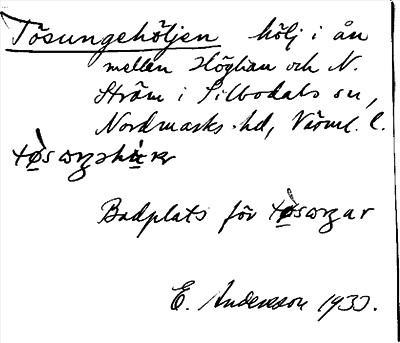 Tösungehöljen hölj i ån
mellan Höglian och N.
Ström i Silbodals sn,
Nordmarks hd, Värml. l.
Badplats för
E. Andersson 1930.